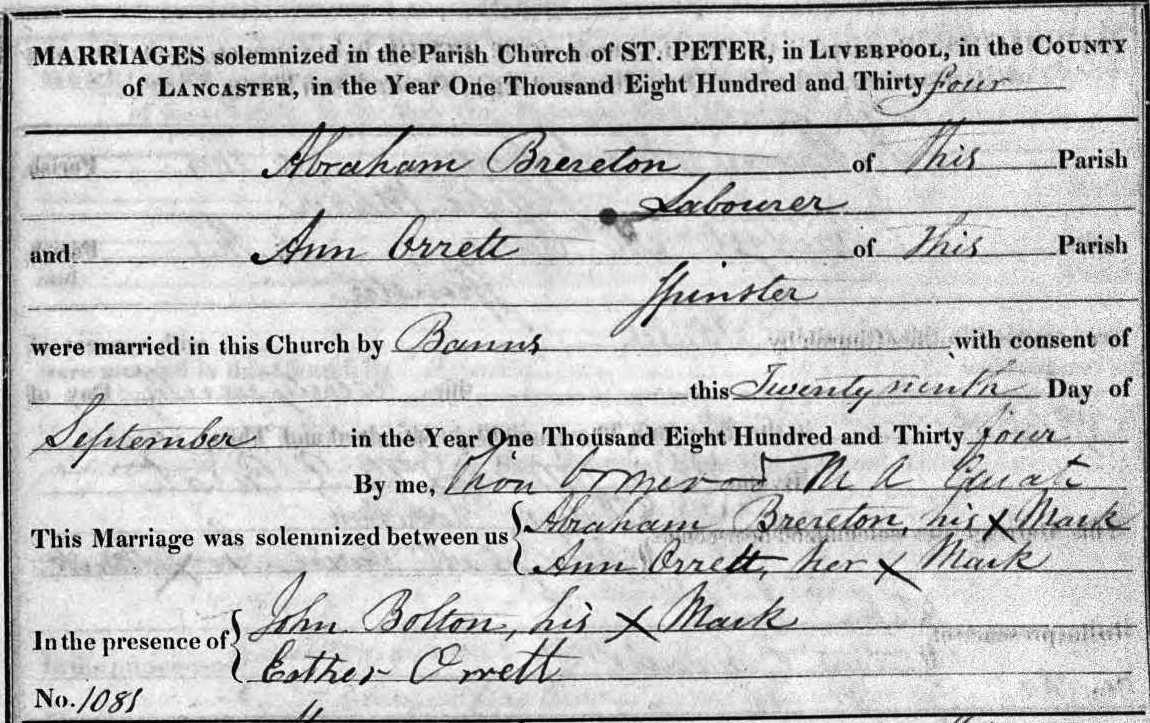 MARRIAGES solemnized in the Parish Church of ST. PETER, in LIVERPOOL, in the COUNTY
of LANCASTER, in the Year One Thousand Eight Hundred and Thirty four
Abraham Brereton of this Parish
Labourer
and Ann Orrett of this Parish
Spinster
were married in this Church by Banns with consent of
this Twenty ninth Day of
September in the Year One Thousand Eight Hundred and Thirty four
By me, M A Curate
This Marriage was solemnized between us Abraham Brereton, his X Mark
Ann Orrett, her X Mark
In the presence of John Bolton, his X Mark
Esther Orrett
No. 1081